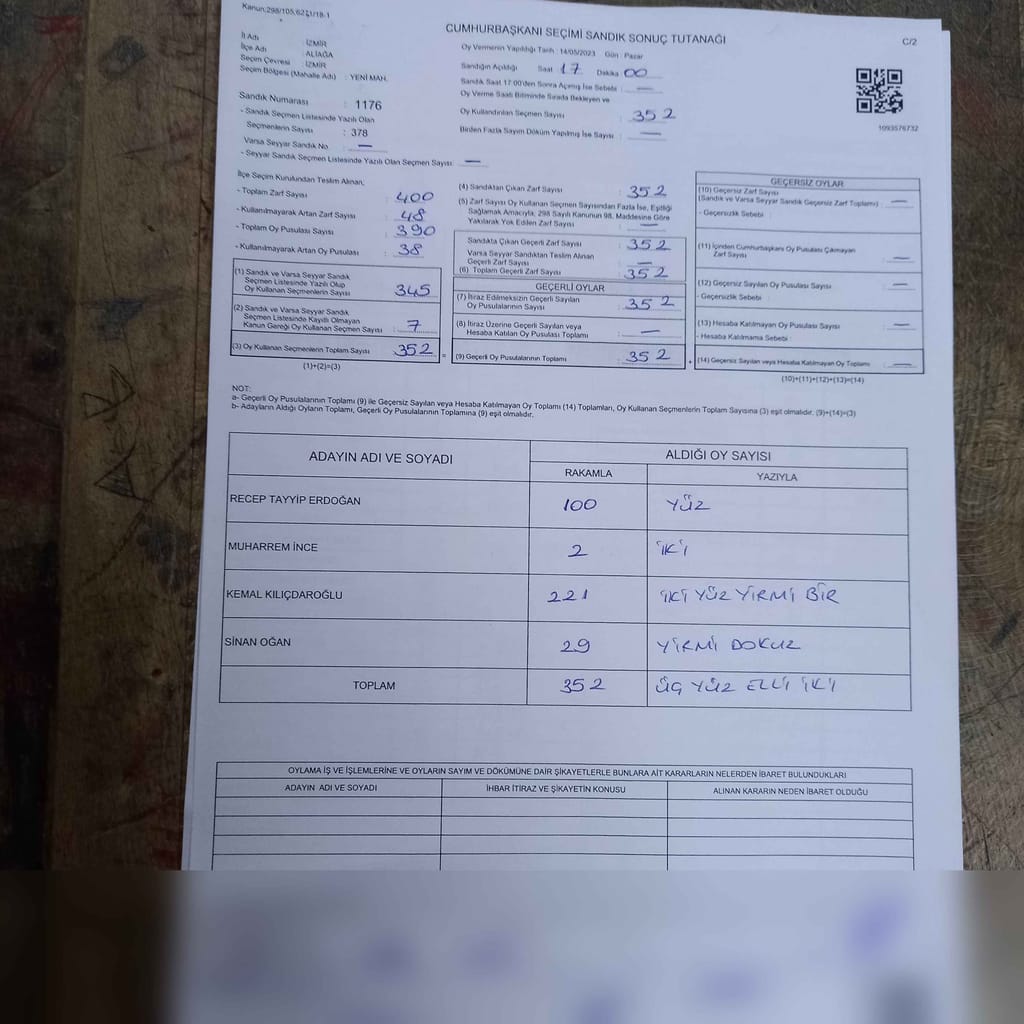 Kanun:298/105,62 1/18-1
CUMHURBAŞKANI SEÇİMİ SANDIK SONUÇ TUTANAĞI
C/2
İl Adı : İZMİR
İlçe Adı : ALİAĞA
Seçim Çevresi : İZMİR
Seçim Bölgesi (Mahalle Adı) : YENİ MAH.
Sandık Numarası : 1176
- Sandık Seçmen Listesinde Yazılı Olan
Seçmenlerin Sayısı : 378
Varsa Seyyar Sandık No : —
- Seyyar Sandık Seçmen Listesinde Yazılı Olan Seçmen Sayısı : —
Oy Vermenin Yapıldığı Tarih : 14/05/2023 Gün : Pazar
Sandığın Açıldığı Saat 17 Dakika 00
Sandık Saat 17:00'den Sonra Açılmış İse Sebebi : —
Oy Verme Saati Bitiminde Sırada Bekleyen ve
Oy Kullandırılan Seçmen Sayısı : 352
Birden Fazla Sayım Döküm Yapılmış İse Sayısı : —
1093576732
İlçe Seçim Kurulundan Teslim Alınan;
- Toplam Zarf Sayısı : 400
- Kullanılmayarak Artan Zarf Sayısı : 48
- Toplam Oy Pusulası Sayısı : 390
- Kullanılmayarak Artan Oy Pusulası : 38
(1) Sandık ve Varsa Seyyar Sandık
Seçmen Listesinde Yazılı Olup
Oy Kullanan Seçmenlerin Sayısı : 345
(2) Sandık ve Varsa Seyyar Sandık
Seçmen Listesinde Kayıtlı Olmayan
Kanun Gereği Oy Kullanan Seçmen Sayısı : 7
(3) Oy Kullanan Seçmenlerin Toplam Sayısı : 352
(1)+(2)=(3)
(4) Sandıktan Çıkan Zarf Sayısı : 352
(5) Zarf Sayısı Oy Kullanan Seçmen Sayısından Fazla İse, Eşitliği
Sağlamak Amacıyla, 298 Sayılı Kanunun 98. Maddesine Göre
Yakılarak Yok Edilen Zarf Sayısı : —
Sandıkta Çıkan Geçerli Zarf Sayısı : 352
Varsa Seyyar Sandıktan Teslim Alınan
Geçerli Zarf Sayısı : —
(6) Toplam Geçerli Zarf Sayısı : 352
GEÇERLİ OYLAR
(7) İtiraz Edilmeksizin Geçerli Sayılan
Oy Pusulalarının Sayısı : 352
(8) İtiraz Üzerine Geçerli Sayılan veya
Hesaba Katılan Oy Pusulası Toplamı : —
= (9) Geçerli Oy Pusulalarının Toplamı : 352
GEÇERSİZ OYLAR
(10) Geçersiz Zarf Sayısı
(Sandık ve Varsa Seyyar Sandık Geçersiz Zarf Toplamı) : —
- Geçersizlik Sebebi :
(11) İçinden Cumhurbaşkanı Oy Pusulası Çıkmayan
Zarf Sayısı : —
(12) Geçersiz Sayılan Oy Pusulası Sayısı : —
- Geçersizlik Sebebi :
(13) Hesaba Katılmayan Oy Pusulası Sayısı : —
- Hesaba Katılmama Sebebi :
+ (14) Geçersiz Sayılan veya Hesaba Katılmayan Oy Toplamı : —
(10)+(11)+(12)+(13)=(14)
NOT:
a- Geçerli Oy Pusulalarının Toplamı (9) ile Geçersiz Sayılan veya Hesaba Katılmayan Oy Toplamı (14) Toplamları, Oy Kullanan Seçmenlerin Toplam Sayısına (3) eşit olmalıdır. (9)+(14)=(3)
b- Adayların Aldığı Oyların Toplamı, Geçerli Oy Pusulalarının Toplamına (9) eşit olmalıdır.
ADAYIN ADI VE SOYADI
ALDIĞI OY SAYISI
RAKAMLA YAZIYLA
RECEP TAYYİP ERDOĞAN 100 YÜZ
MUHARREM İNCE 2 İKİ
KEMAL KILIÇDAROĞLU 221 İKİ YÜZ YİRMİ BİR
SİNAN OĞAN 29 YİRMİ DOKUZ
TOPLAM 352 ÜÇ YÜZ ELLİ İKİ
OYLAMA İŞ VE İŞLEMLERİNE VE OYLARIN SAYIM VE DÖKÜMÜNE DAİR ŞİKAYETLERLE BUNLARA AİT KARARLARIN NELERDEN İBARET BULUNDUKLARI
ADAYIN ADI VE SOYADI İHBAR İTİRAZ VE ŞİKAYETİN KONUSU ALINAN KARARIN NEDEN İBARET OLDUĞU